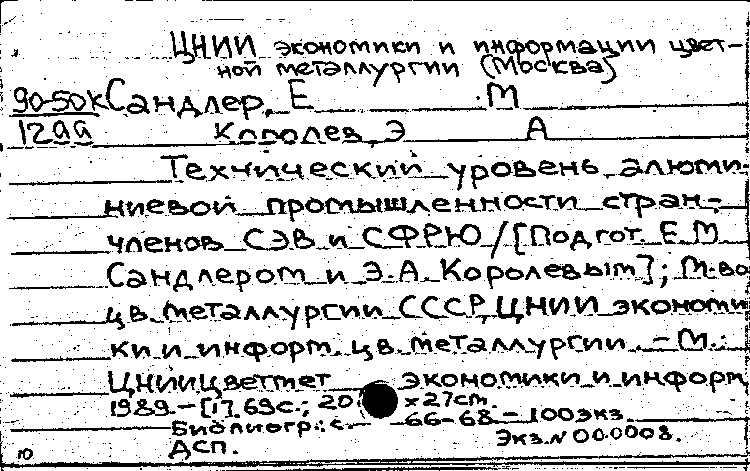 ЦНИИ экономики и информации цвет-
ной металлургии (Москва)
90-50к Сандлер, Е М
1299 Королев, Э А
Технический уровень алюми-
ниевой промышленности стран-
членов СЭВ и СФРЮ / [Подгот. Е.М.
Сандлером и Э.А. Королевым]; М-во
цв. металлургии СССР, ЦНИИ экономи
ки и информ. цв. металлургии. - М.:
ЦНИИцветмет экономики и информ,
1989. - [1], 69с.; 20 х 27cm.
Библиогр.: с. 66-68. - 100экз.
ДСП. Экз. N 000008.
10